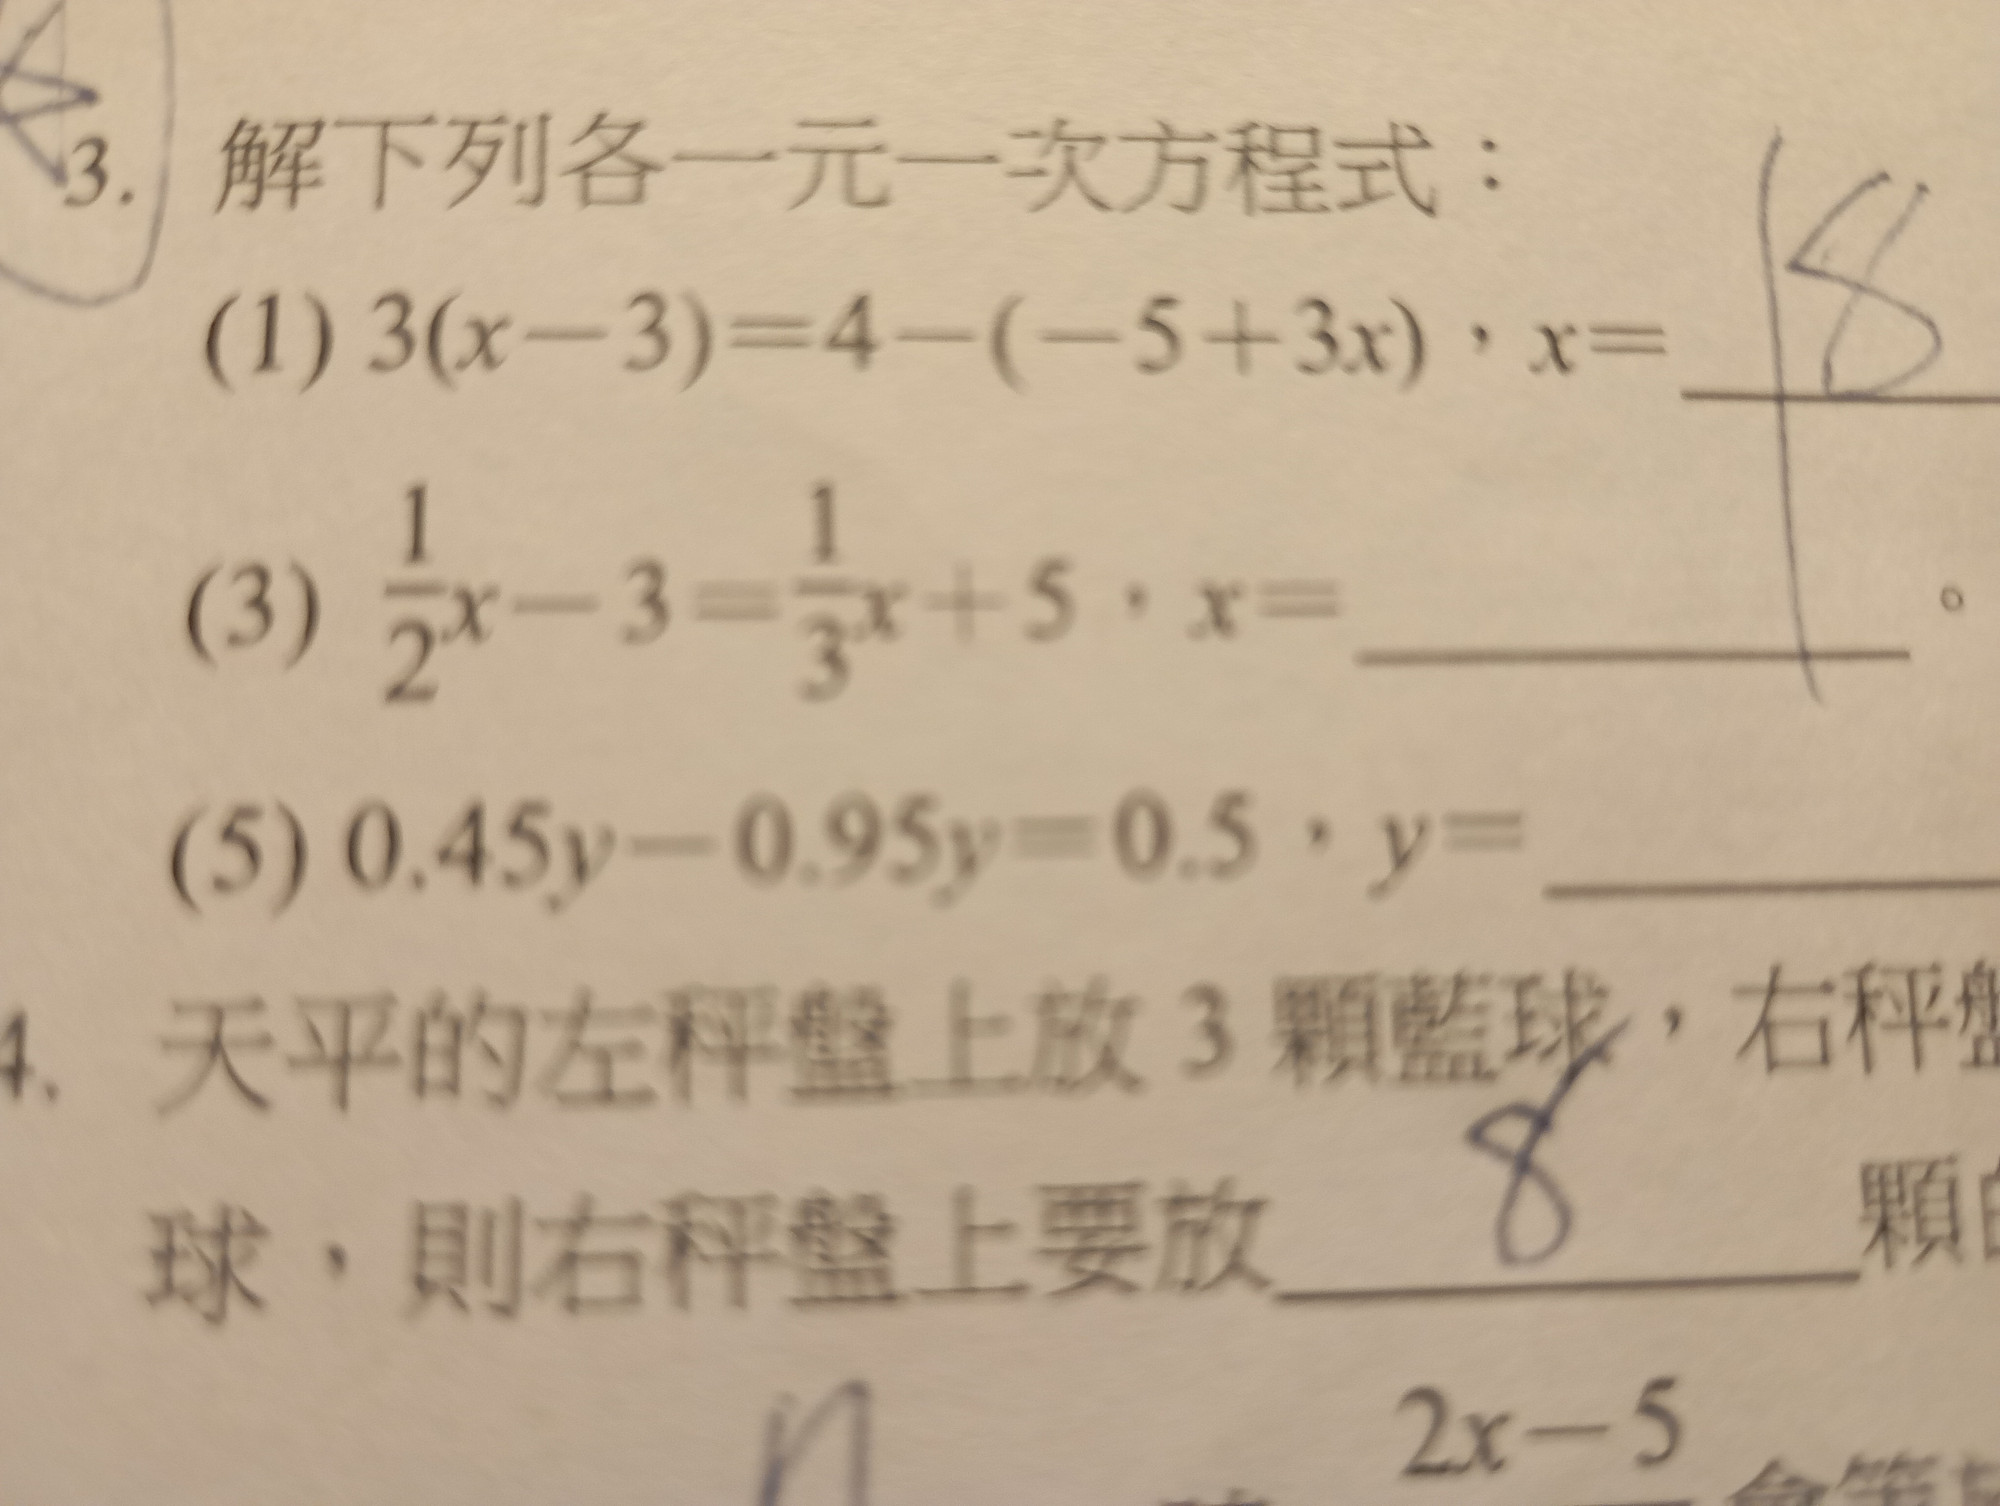 3. 解下列各一元一次方程式：
(1) 3(x－3)＝4－(－5＋3x)，x＝ 18
(3) 1/2x－3＝1/3x＋5，x＝ 。
(5) 0.45y－0.95y＝0.5，y＝
4. 天平的左秤盤上放 3 顆藍球，右秤盤
球，則右秤盤上要放 8 顆
2x－5